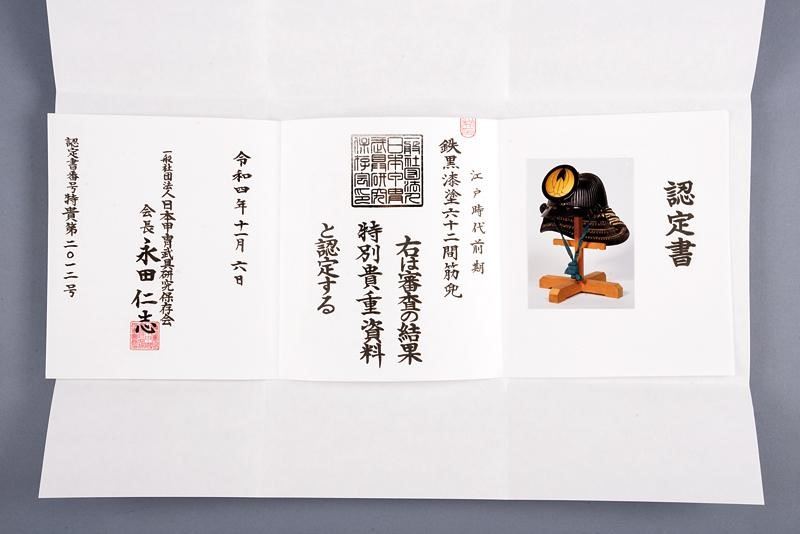 認定書
江戸時代前期
鉄黒漆塗六十二間筋兜
右は審査の結果
特別貴重資料
と認定する
令和四年十一月六日
一般社団法人日本甲冑武具研究保存会
会長 永田仁志
認定書番号特貴第二〇一二号
一般社団法人
日本甲冑
武具研究
保存会印